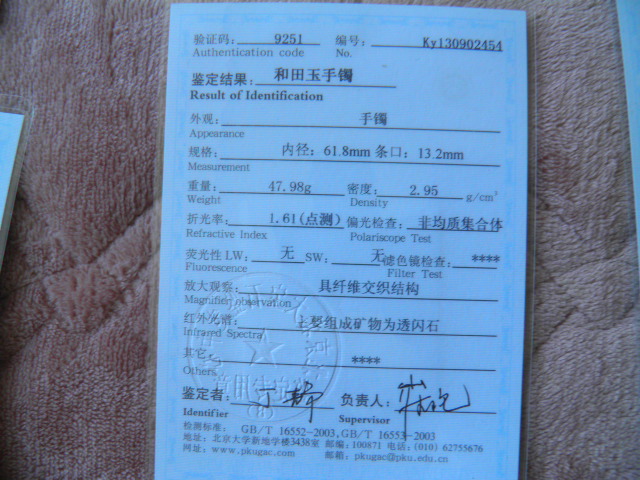 验证码: 9251 编号: Ky130902454
Authentication code No.
鉴定结果: 和田玉手镯
Result of Identification
外观: 手镯
Appearance
规格: 内径: 61.8mm 条口: 13.2mm
Measurement
重量: 47.98g 密度: 2.95 g/cm³
Weight Density
折光率: 1.61(点测) 偏光检查: 非均质集合体
Refractive Index Polariscope Test
荧光性 LW: 无 SW: 无 滤色镜检查: ****
Fluorescence Filter Test
放大观察: 具纤维交织结构
Magnifier observation
红外光谱: 主要组成矿物为透闪石
Infrared Spectra
其它: ****
Others
鉴定者: 负责人:
Identifier Supervisor
检测标准: GB/T 16552-2003,GB/T 16553-2003
地址: 北京大学新地学楼3438室 邮编: 100871 电话: (010) 62755676
网址: www.pkugac.com 邮箱: pkugac@pku.edu.cn